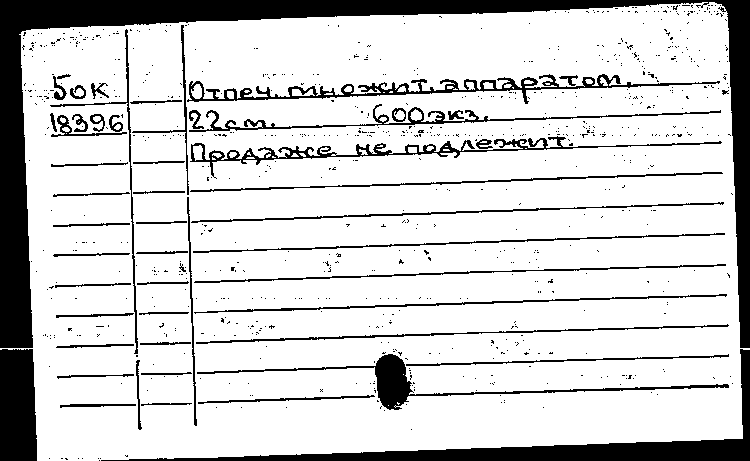 Бок Отпеч. множит. аппаратом.
18396 22 см. 600 экз.
Продаже не подлежит.